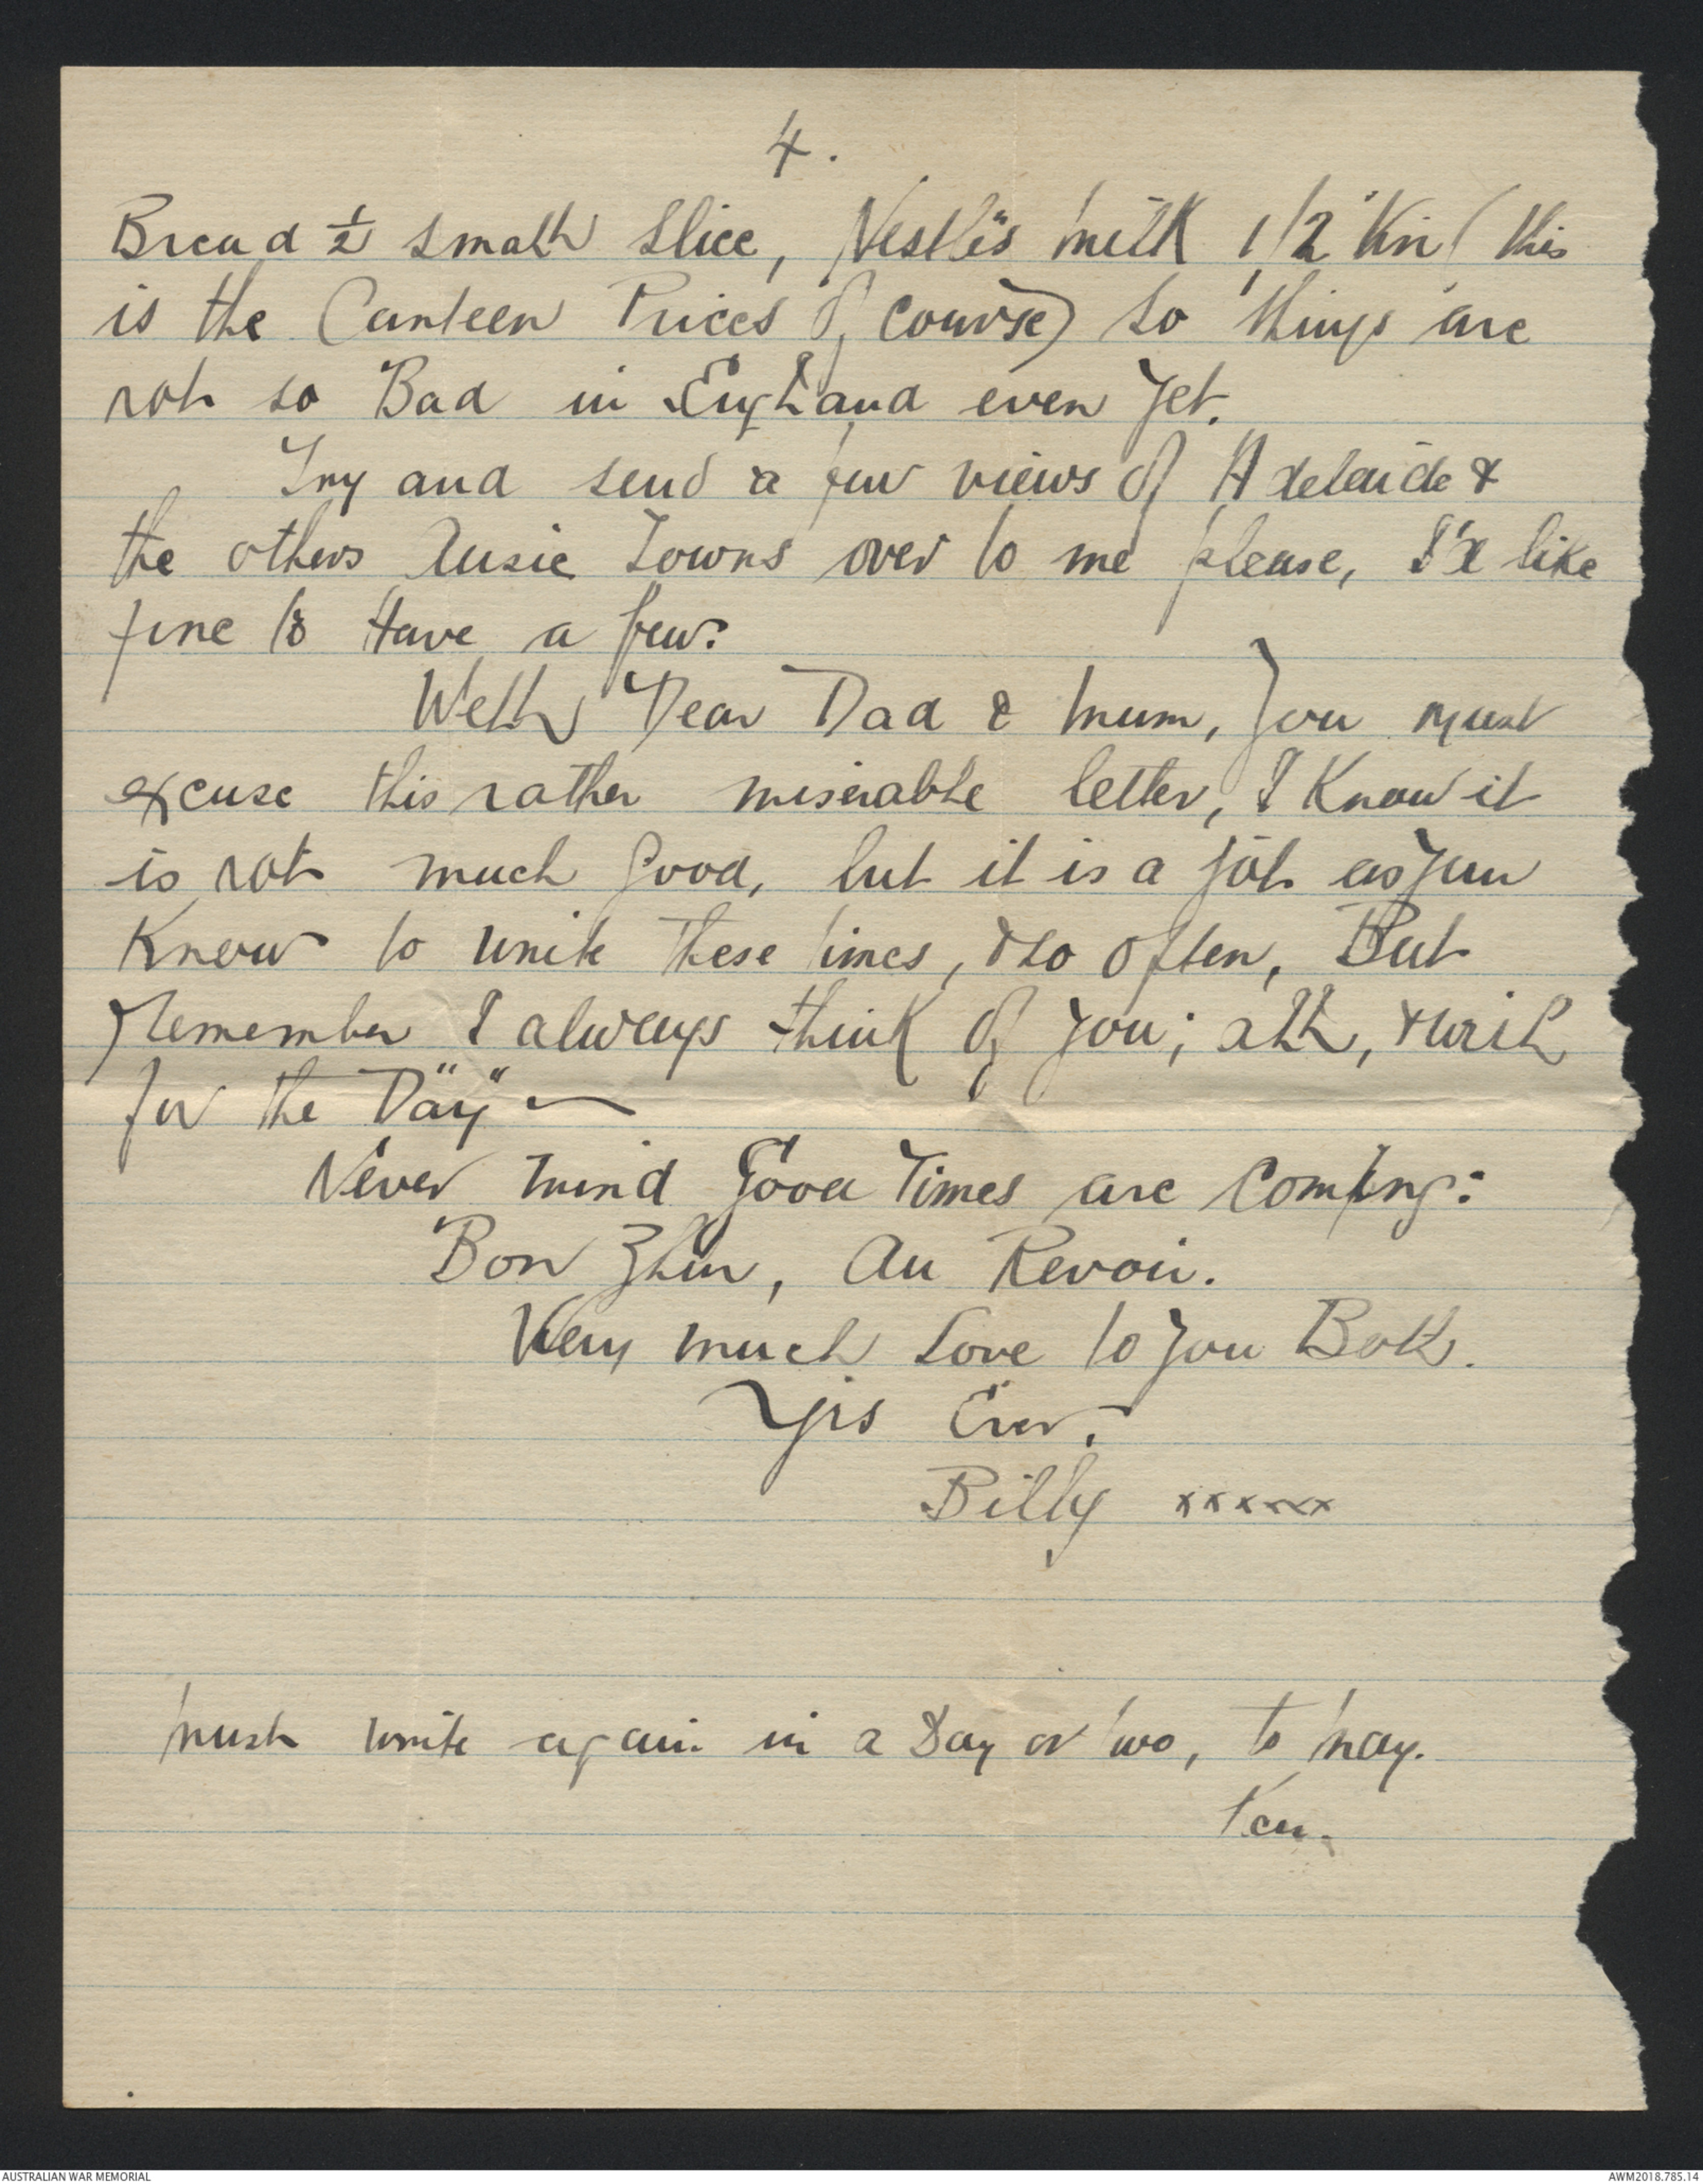 4.
Bread ½ small slice, Nestle's milk 1/2 tin (this
is the Canteen Prices of course) so things are
not so Bad in England even yet.
Try and send a few views of Adelaide &
the others Ausie Towns over to me please, I'd like
fine to Have a few.
Well Dear Dad & Mum, you must
excuse this rather miserable letter, I Know it
is not much good, but it is a job as you
Know to write these times, & so often, But
Remember I always think of you; all, & wish
for the "Day"
Never mind Good Times are coming:
Bon , Au Revoir.
Very much Love to you Both.
Yrs Ever.
Billy xxxxxx
Must write again in a Day or two, to May.
AUSTRALIAN WAR MEMORIAL
AWM2018.785.14